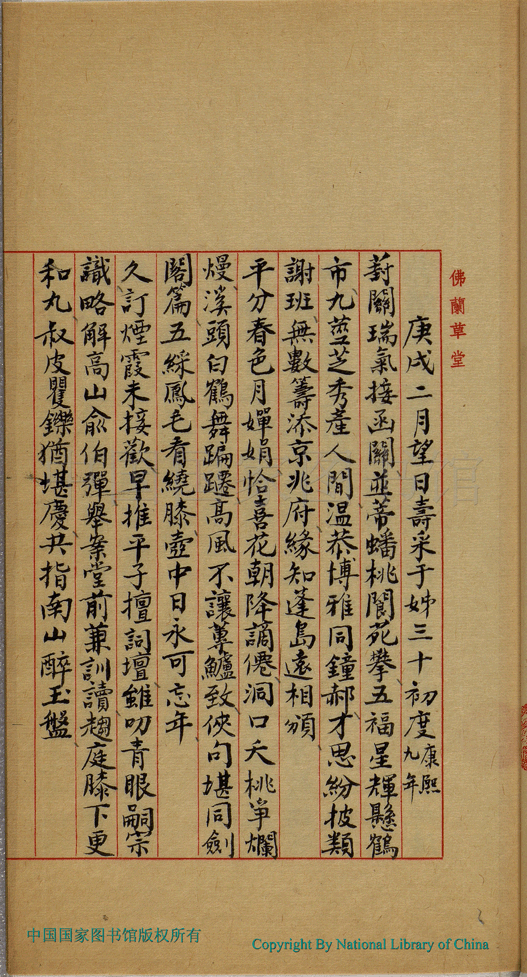 佛蘭草堂
庚戌二月望日壽采于姊三十初度康熙九年
葑關瑞氣接函關並蒂蟠桃閬苑攀五福星輝懸鶴
市九莖芝秀產人間温恭博雅同鐘郝才思紛披類
謝班無數籌添京兆府緣知蓬島遠相頒
平分春色月嬋娟恰喜花朝降謫僊洞口夭桃爭爛
熳溪頭白鶴舞蹁躚高風不讓蓴鱸致俠句堪同劍
閣篇五綵鳳毛看繞膝壺中日永可忘年
久訂煙霞未接歡早推平子擅詞壇雖叨青眼嗣宗
識略解高山俞伯彈舉案堂前兼訓讀趨庭膝下更
和丸叔皮矍鑠猶堪慶共指南山醉玉盤
中国国家图书馆版权所有
Copyright By National Library of China